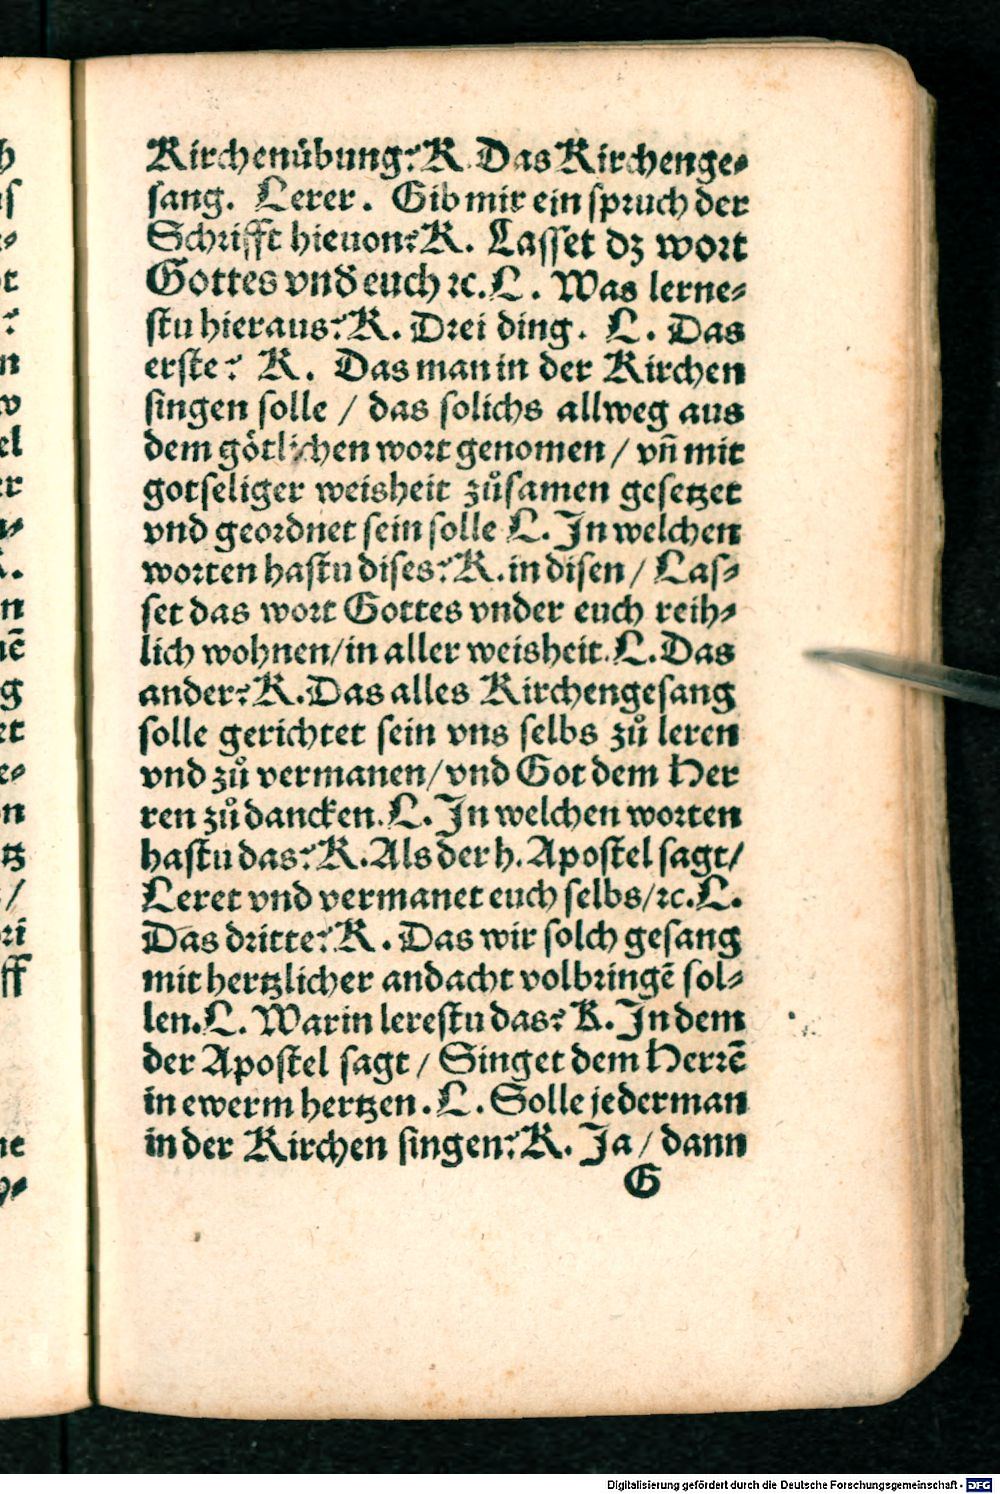 Kirchenübung? K. Das Kirchenge-
sang. Lerer. Gib mir ein spruch der
Schrifft hieuon? K. Lasset dz wort
Gottes vnd euch ꝛc. L. Was lerne-
stu hieraus? K. Drei ding. L. Das
erste? K. Das man in der Kirchen
singen solle / das solichs allweg aus
dem götlichen wort genomen / vñ mit
gotseliger weisheit zůsamen gesetzet
vnd geordnet sein solle L. In welchen
worten hastu dises? K. in disen / Las-
set das wort Gottes vnder euch reih-
lich wohnen / in aller weisheit. L. Das
ander? K. Das alles Kirchengesang
solle gerichtet sein vns selbs zů leren
vnd zů vermanen / vnd Got dem Her
ren zů dancken. L. In welchen worten
hastu das? K. Als der h. Apostel sagt /
Leret vnd vermanet euch selbs / ꝛc. L.
Das dritte? K. Das wir solch gesang
mit hertzlicher andacht volbringē sol-
len. L. Warin lerestu das? K. In dem
der Apostel sagt / Singet dem Herrē
in ewerm hertzen. L. Solle jederman
in der Kirchen singen? K. Ja / dann
G
Digitalisierung gefördert durch die Deutsche Forschungsgemeinschaft - DFG